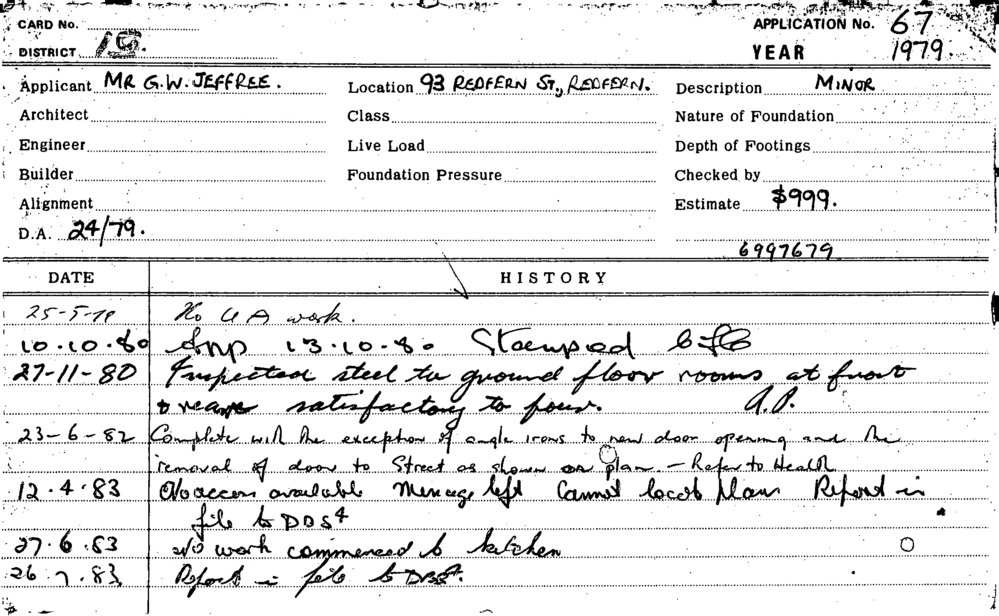 CARD No.
APPLICATION No. 67
DISTRICT 10.
YEAR 1979.
Applicant MR G.W. JEFFREE. Location 93 REDFERN ST., REDFERN. Description MINOR
Architect Class Nature of Foundation
Engineer Live Load Depth of Footings
Builder Foundation Pressure Checked by
Alignment Estimate $999.
D.A. 24/79.
6997679
DATE HISTORY
25-5-79 No work.
10.10.80 13.10.80 Stamped
27-11-80 Inspected steel to ground floor rooms at front
& rear satisfactory to pour. A.P.
23-6-82 Complete with the exception of angle irons to new door opening and the
removal of door to Street as shown on plan. - Refer to Health
12.4.83 No access available Message left Cannot locate Plans Report in
file to DBS4
27.6.83 No work commenced to kitchen
26.7.83 Report in file to DBS4.